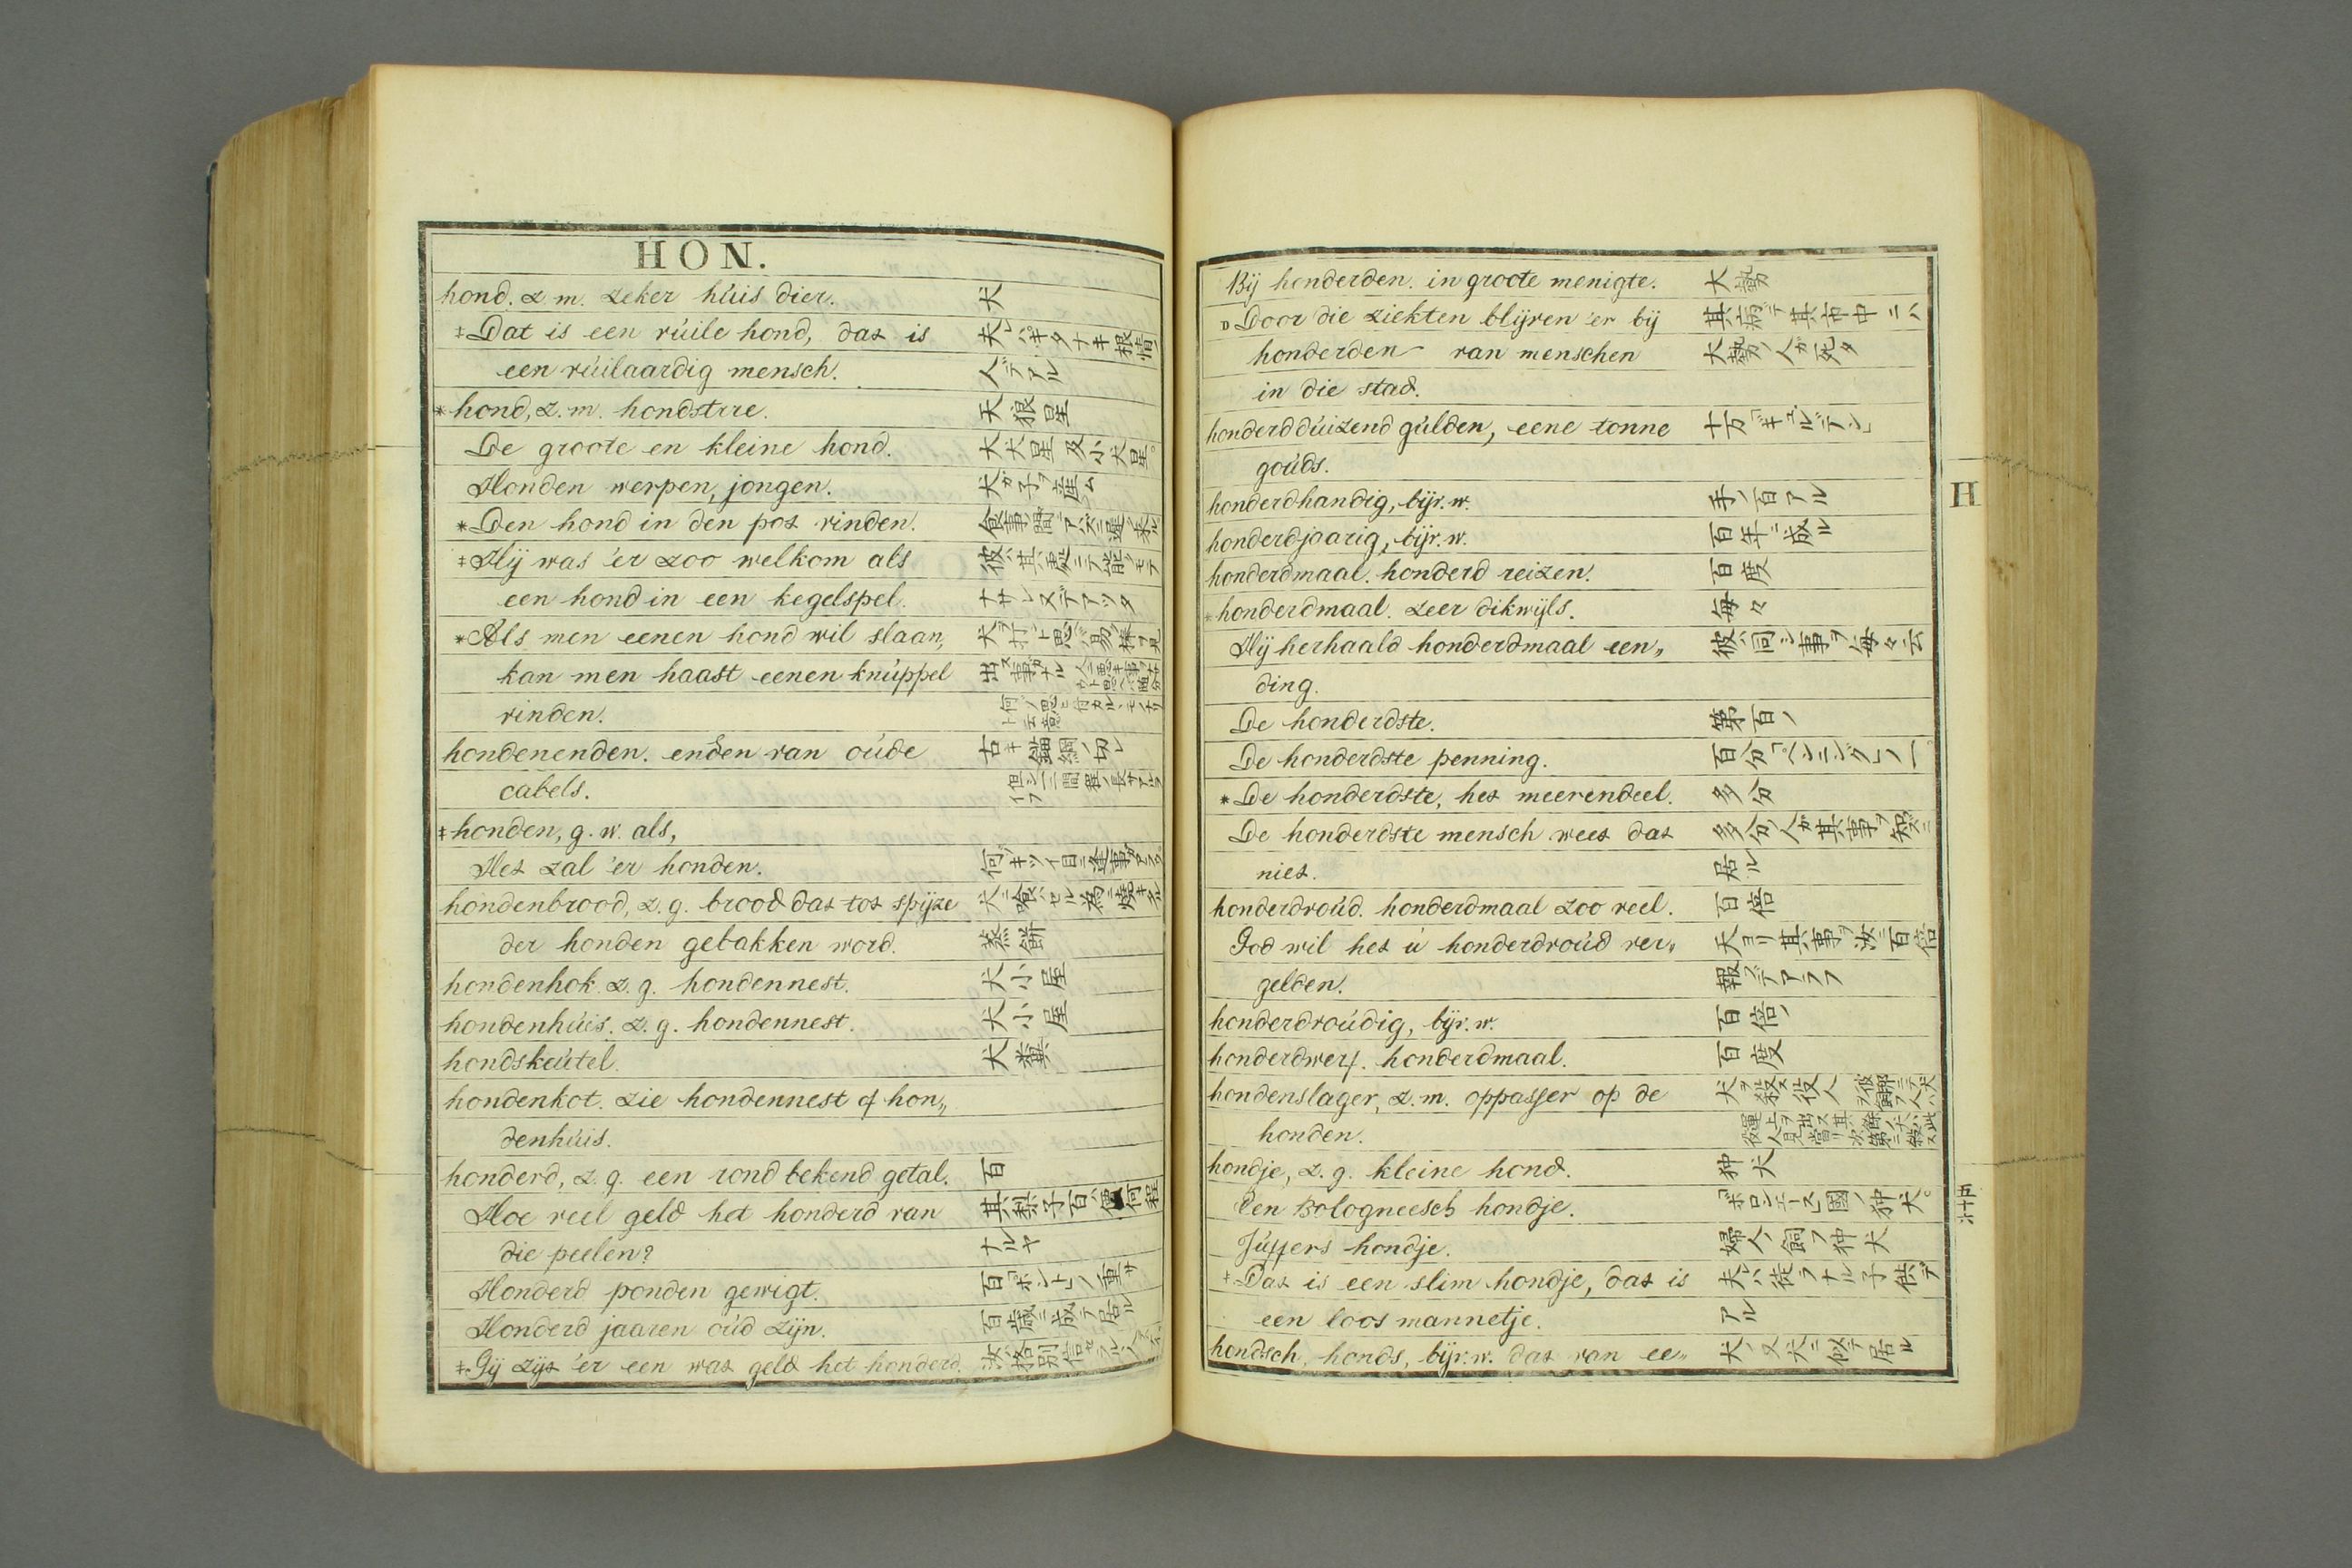 HON.
hond. z m. zeker húis dier. 犬
‡Dat is een vúile hond, dat is 夫レハキタナキ根情ノ
een vúilaardig mensch. 人デアル
*hond, z. m. hondstrre. 天狼星
De groote en kleine hond. 大犬星及小犬星。
Honden werpen, jongen. 犬ガ子ヲ産ム
*Den hond in den pot vinden. 食事間
‡Hij was 'er zoo welkom als 彼ハ其処ニテ能クモテ
een hond in een kegelspel. ナサレヌデアツタ
*Als men eenen hond wil slaan, 犬ヲ打ント思ヘバ易ク棒ヲ見
kan men haast eenen knúppel 出ス事ガナル
vinden.
hondenenden. enden van oúde 古キ錨綱ノ切レ
cabels.
‡honden, g. w. als,
Het zal 'er honden. 何ゾキツイ目ニ逢事デアラフ
hondenbrood, z. g. brood dat tot spijze 犬ニ喰ハセル為ニ焼キタル
der honden gebakken word. 蒸餅
hondenhok. z. g. hondennest. 犬小屋
hondenhúis. z. g. hondennest. 犬小屋
hondskeútel. 犬糞
hondenkot. zie hondennest of hon„
denhúis.
honderd, z. g. een rond bekend getal. 百
Hoe veel geld het honderd van 其梨子百ハ價何程
die peelen? ナルヤ
Honderd ponden gewigt. 百「ポント」ノ重サ
Honderd jaaren oúd zijn. 百歳ニ成テ居ル
‡Gij zijt 'er een wat geld het honderd. 汝ハ格別
Bij honderden. in groote menigte. 大勢
Door die ziekten blijven 'er bij 其病デ其市中ニハ
honderden van menschen 大勢ノ人ガ死タ
in die stad.
honderddúizend gúlden, eene tonne 十万「ギュルデン」
goúds.
honderdhandig, bijv. w. 手ノ百アル
honderdjaarig, bijv. w. 百年ニ成ル
honderdmaal. honderd reizen. 百度
*honderdmaal. zeer dikwijls. 毎々
Hij herhaald honderdmaal een„ 彼ハ同シ事ヲ毎々云
ding.
De honderdste. 第百ノ
De honderdste penning. 百分「ペンニング」ノ一。
*De honderdste, het meerendeel. 多分
De honderdste mensch weet dat 多分ノ人ガ其事ヲ知ズニ
niet. 居ル
honderdvoúd. honderdmaal zoo veel. 百倍
God wil het ú honderdvoúd ver„ 天ヨリ其事ヲ汝ニ百倍
gelden. 報ズデアラフ
honderdvoúdig, bijv. w. 百倍ノ
honderdwerf. honderdmaal. 百度
hondenslager, z. m. oppasser op de 犬ヲ殺ス役人
honden.
hondje, z. g. kleine hond. 狆犬
Een Bologneesch hondje. 「ボロンエース」國ノ狆犬。
Júffers hondje. 婦人ノ飼フ狆犬
‡Dat is een slim hondje, dat is 夫レハ徒ラナル子供デ
een loos mannetje. アル
hondsch, honds, bijv. w. dat van ee„ 犬ノ又犬ニ似テ居ル
H